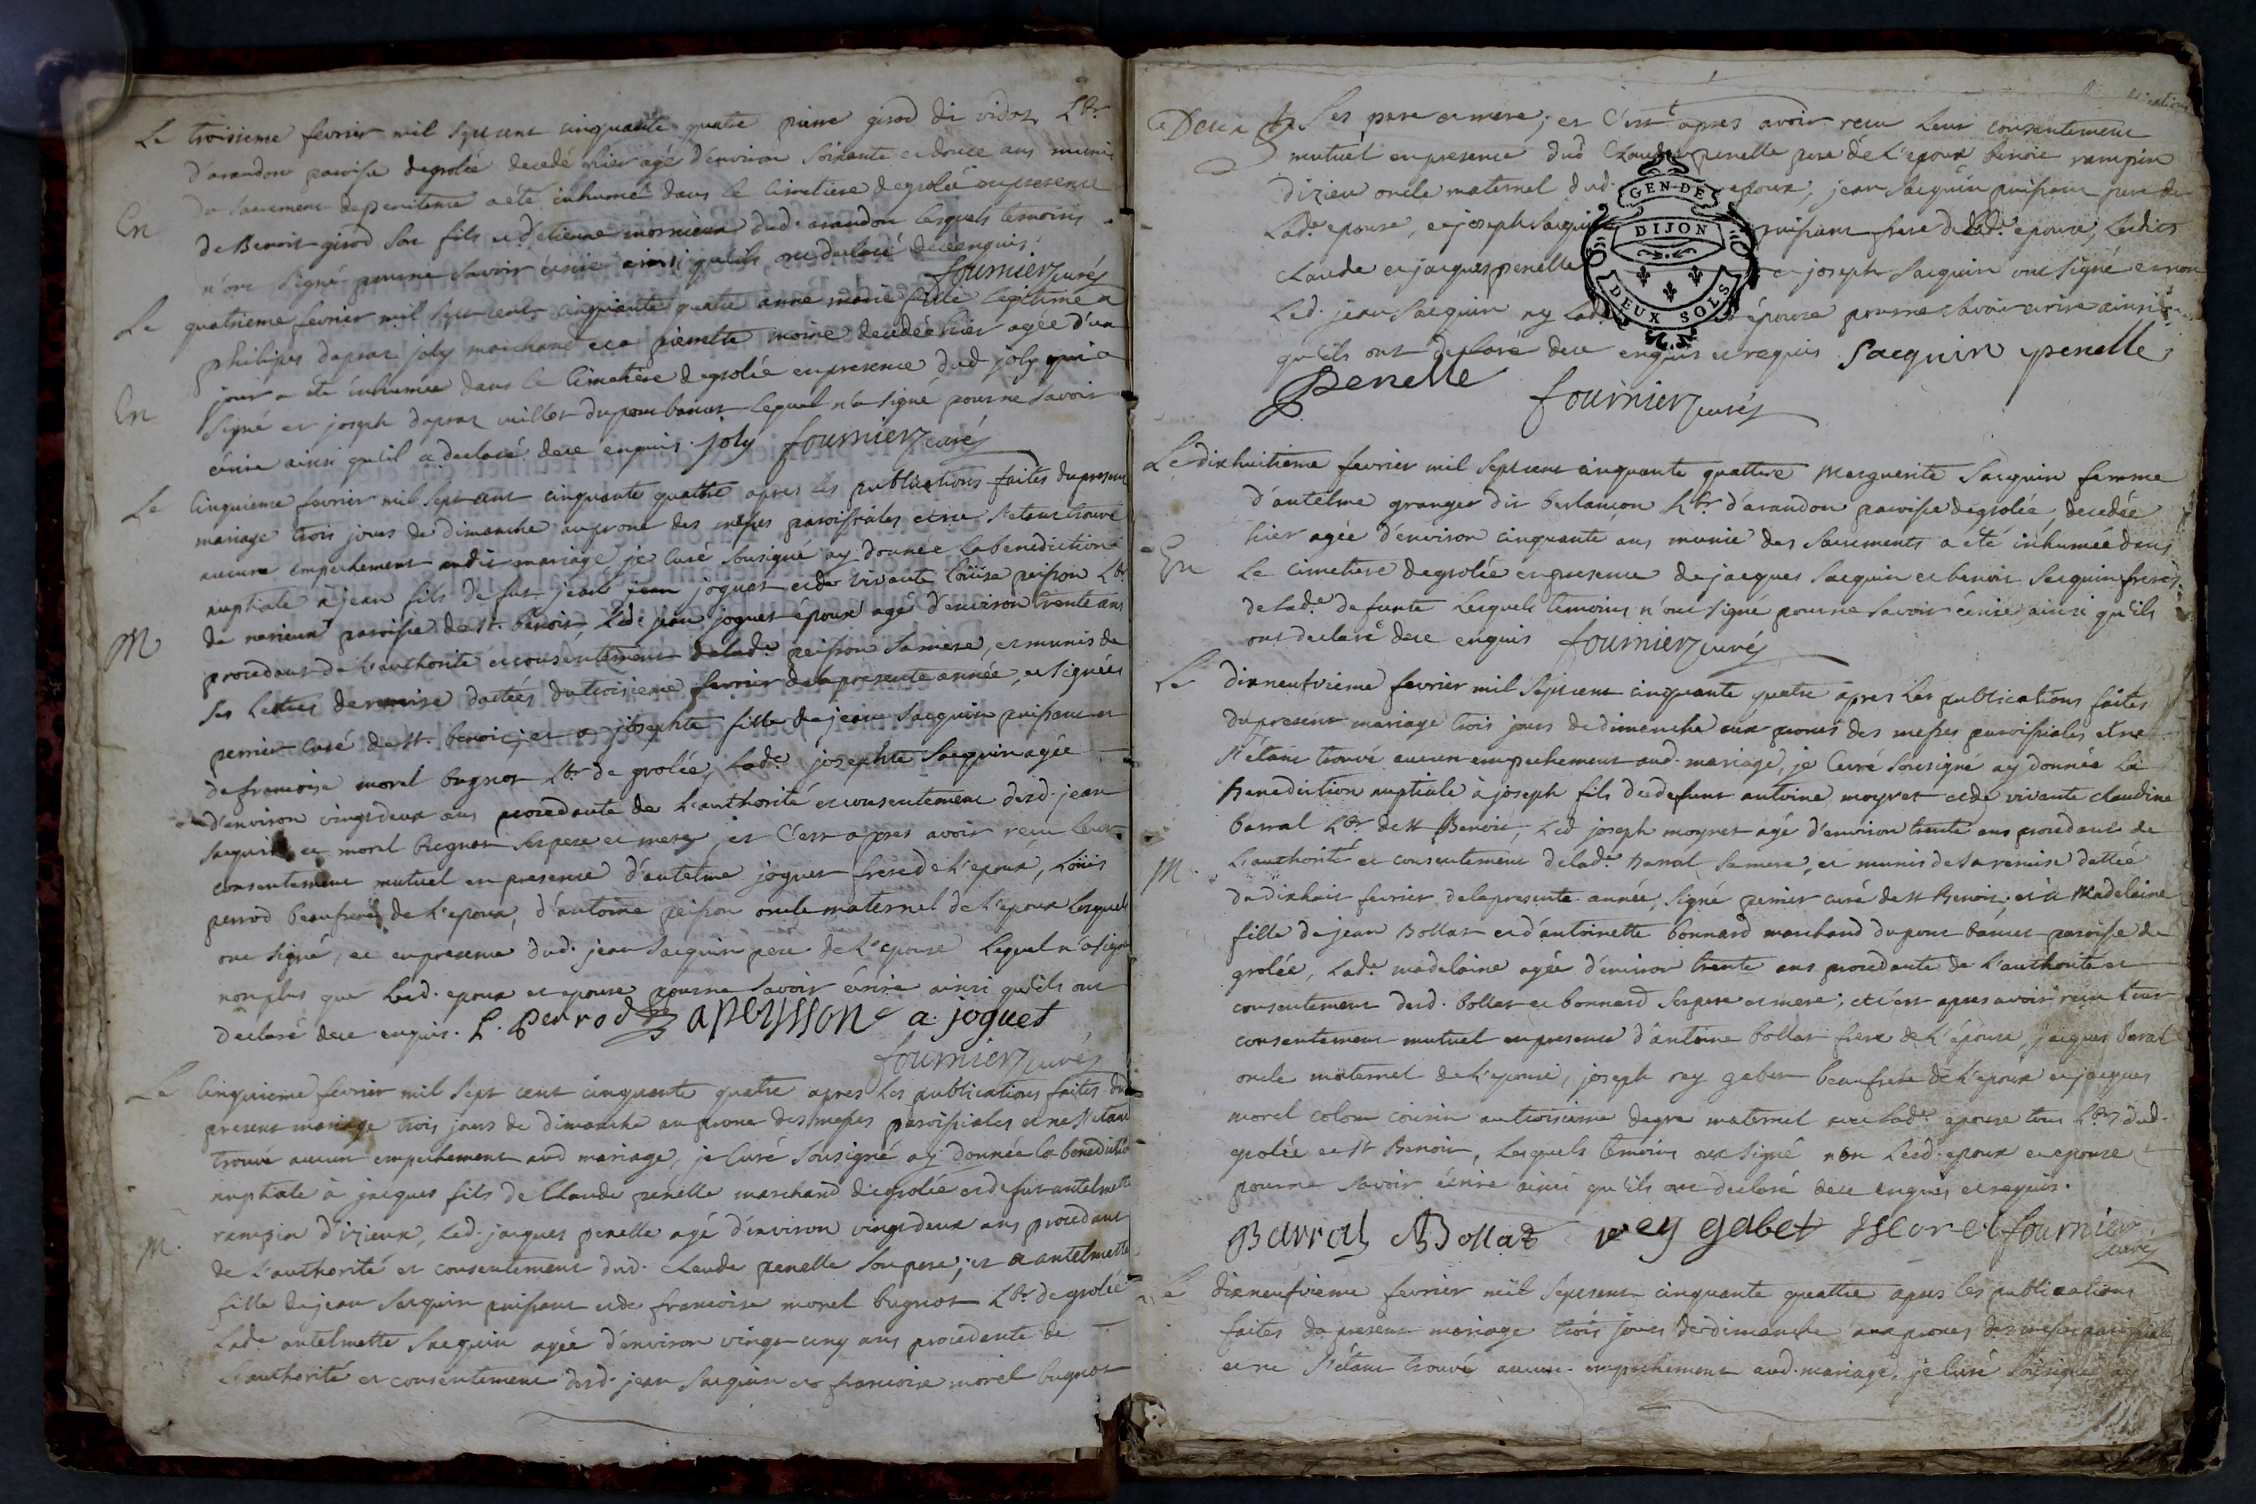 Le troisieme fevrier mil sept cent cinquante quatre pierre girod dit vidoz Lbr
d'arandon paroisse de grolée decedé hier agé d'environ soixante et douze ans munis
du sacrement de penitence a été inhumé dans le cimetiere de grolée en presence
En
de Benoit girod son fils et d'etienne mornieux dud. arandon lesquels temoins
n'ont signé pour ne savoir écrire ainsi qu'ils ont declaré de ce enquis.
fournier curé
Le quatrieme fevrier mil sept cent cinquante quatre anne marie fille legitime a
philipes dapraz joly marchand et a pierrette moine decedée hier agée d'un
jour a été inhumée dans le cimetiere de grolée en presence dud. joly qui a
En
signé et joseph dapraz du pont bancet lequel n'a signé pour ne savoir
écrire ainsi qu'il a declaré de ce enquis. joly fournier curé
Le cinquieme fevrier mil sept cent cinquante quattre apres les publications faites du present
mariage trois jours de dimanche au prone des messes paroissiales et ne s'etant trouvé
aucun empechement audit mariage, je curé sousigné ay donnée la benediction
nuptiale a jean fils de fut jean joguet et de vivante loüise peisson Lbr
de paroisse de st. benoit, led. jean joguet époux agé d'environ trente ans
M
procedant de l'authorité et consentement de lad.e peisson sa mere, et munis de
ses lettres de remise dattées du troisieme fevrier de la presente année, et signées
perrier curé de st. benoit; et a josephte fille de jean sacquin puissant et
de francoise morel bugnot Lbr de grolée, lad.e josephte sacquin agée
d'environ vingt deux ans procedante de l'authorité et consentement desd. jean
sacquin et morel bugnot ses pere et mere; et c'est apres avoir reçu leur
consentement mutuel en presence d'antelme joguet frere de l'epoux, loüis
perrod beaufrere de l'epoux, d'antoine peisson oncle maternel de l'epoux lesquels
ont signé, et en presence dud. jean sacquin pere de l'epouse lequel n'a signé
non plus que lesd. epoux et epouse pour ne savoir écrire ainsi qu'ils ont
declaré de ce enquis. L. perrod apeysson a. joguet
fournier curé
Le cinquieme fevrier mil sept cent cinquante quatre apres les publications faites du
present mariage trois jours de dimanche au prone des messes paroissiales et ne s'etant
trouvé aucun empechement aud mariage, je curé sousigné ay donnée la benediction
nuptiale à jacques fils de Claude penelle marchand de grolée et de fut antelmette
rampin d'izieux, led. jacques penelle agé d'environ vingt deux ans procedant
M.
de l'authorité et consentement dud. Claude penelle son pere; et a antelmette
fille de jean sacquin puissant et de francoise morel bugnot Lbr de grolée
Lad.e antelmette sacquin agée d'environ vingt cinq ans procedante de
l'authorité et consentement desd. jean sacquin et francoise morel bugnot
ses pere et mere; et c'est apres avoir reçu leur consentement
mutuel en presence dud Claude penelle pere de l'epoux benoit rampin
d'izieu oncle maternel dud. epoux, jean sacquin puissant pere de
Lad.e epouse, et joseph sacquin puissant frere de lad.e epouse, lesdits
Claude et jacques penelle et joseph sacquin ont signé et non
Led. jean sacquin ny lad. épouse pour ne savoir écrire ainsi
qu'ils ont declaré de ce enquis et requis. Sacquin penelle
penelle fournier curé
GEN. DE
DIJON
DEUX SOLS
Le dixhuitieme fevrier mil sept cent cinquante quattre Marguerite Sacquin femme
d'antelme granger dit berlançon Lbr d'arandon paroisse de grolée, decedée
hier agée d'environ cinquante ans munie des sacrements a été inhumée dans
En
Le cimetiere de grolée en presence de jacques sacquin et benoit sacquin freres
de lad.e defunte lesquels temoins n'ont signé pour ne savoir écrire ainsi qu'ils
ont declaré de ce enquis fournier curé
Le dixneufvieme fevrier mil sept cent cinquante quatre apres les publications faites
du present mariage trois jours de dimanche aux prones des messes paroissiales et ne
s'étant trouvé aucun empechement aud. mariage, je Curé sousigné ay donnée la
Benediction nuptiale à joseph fils de defunt antoine moyret et de vivante claudine
barral Lbr de st Benoit Led joseph moyret agé d'environ trente ans procedant de
L'authorité et consentement de lad.e barral sa mere, et munis de sa remise dattée
M.
du dixhuit fevrier de la presente année, signé perrier curé de st Benoit; et à Madelaine
fille de jean Bollat et d'antoinette bonnard marchand du pont bancet paroisse de
grolée, Lad.e madelaine agée d'environ trente ans procedante de l'authorité et
consentement desd. bollat et bonnard ses pere et mere; et c'est apres avoir reçu leur
consentement mutuel en presence d'antoine bollat frere de l'épouse, jacques barral
oncle maternel de l'epoux, joseph rey gabet beaufrere de l'epoux et jacques
morel colom cousin au troisieme degre maternel avec lad.e epouse tous Lbrs dud.
grolée et st Benoit, lesquels temoins ont signé non lesd. epoux et epouse
pour ne savoir écrire ainsi qu'ils ont declaré de ce enquis et requis.
Barral ABollat rey gabet morel fournier
curé
Le dixneufvieme fevrier mil sept cent cinquante quattre apres les publications
faites du present mariage trois jours de dimanche aux prones des messes paroissiales
et ne s'étant trouvé aucun empechement aud. mariage, je Curé sousigné ay